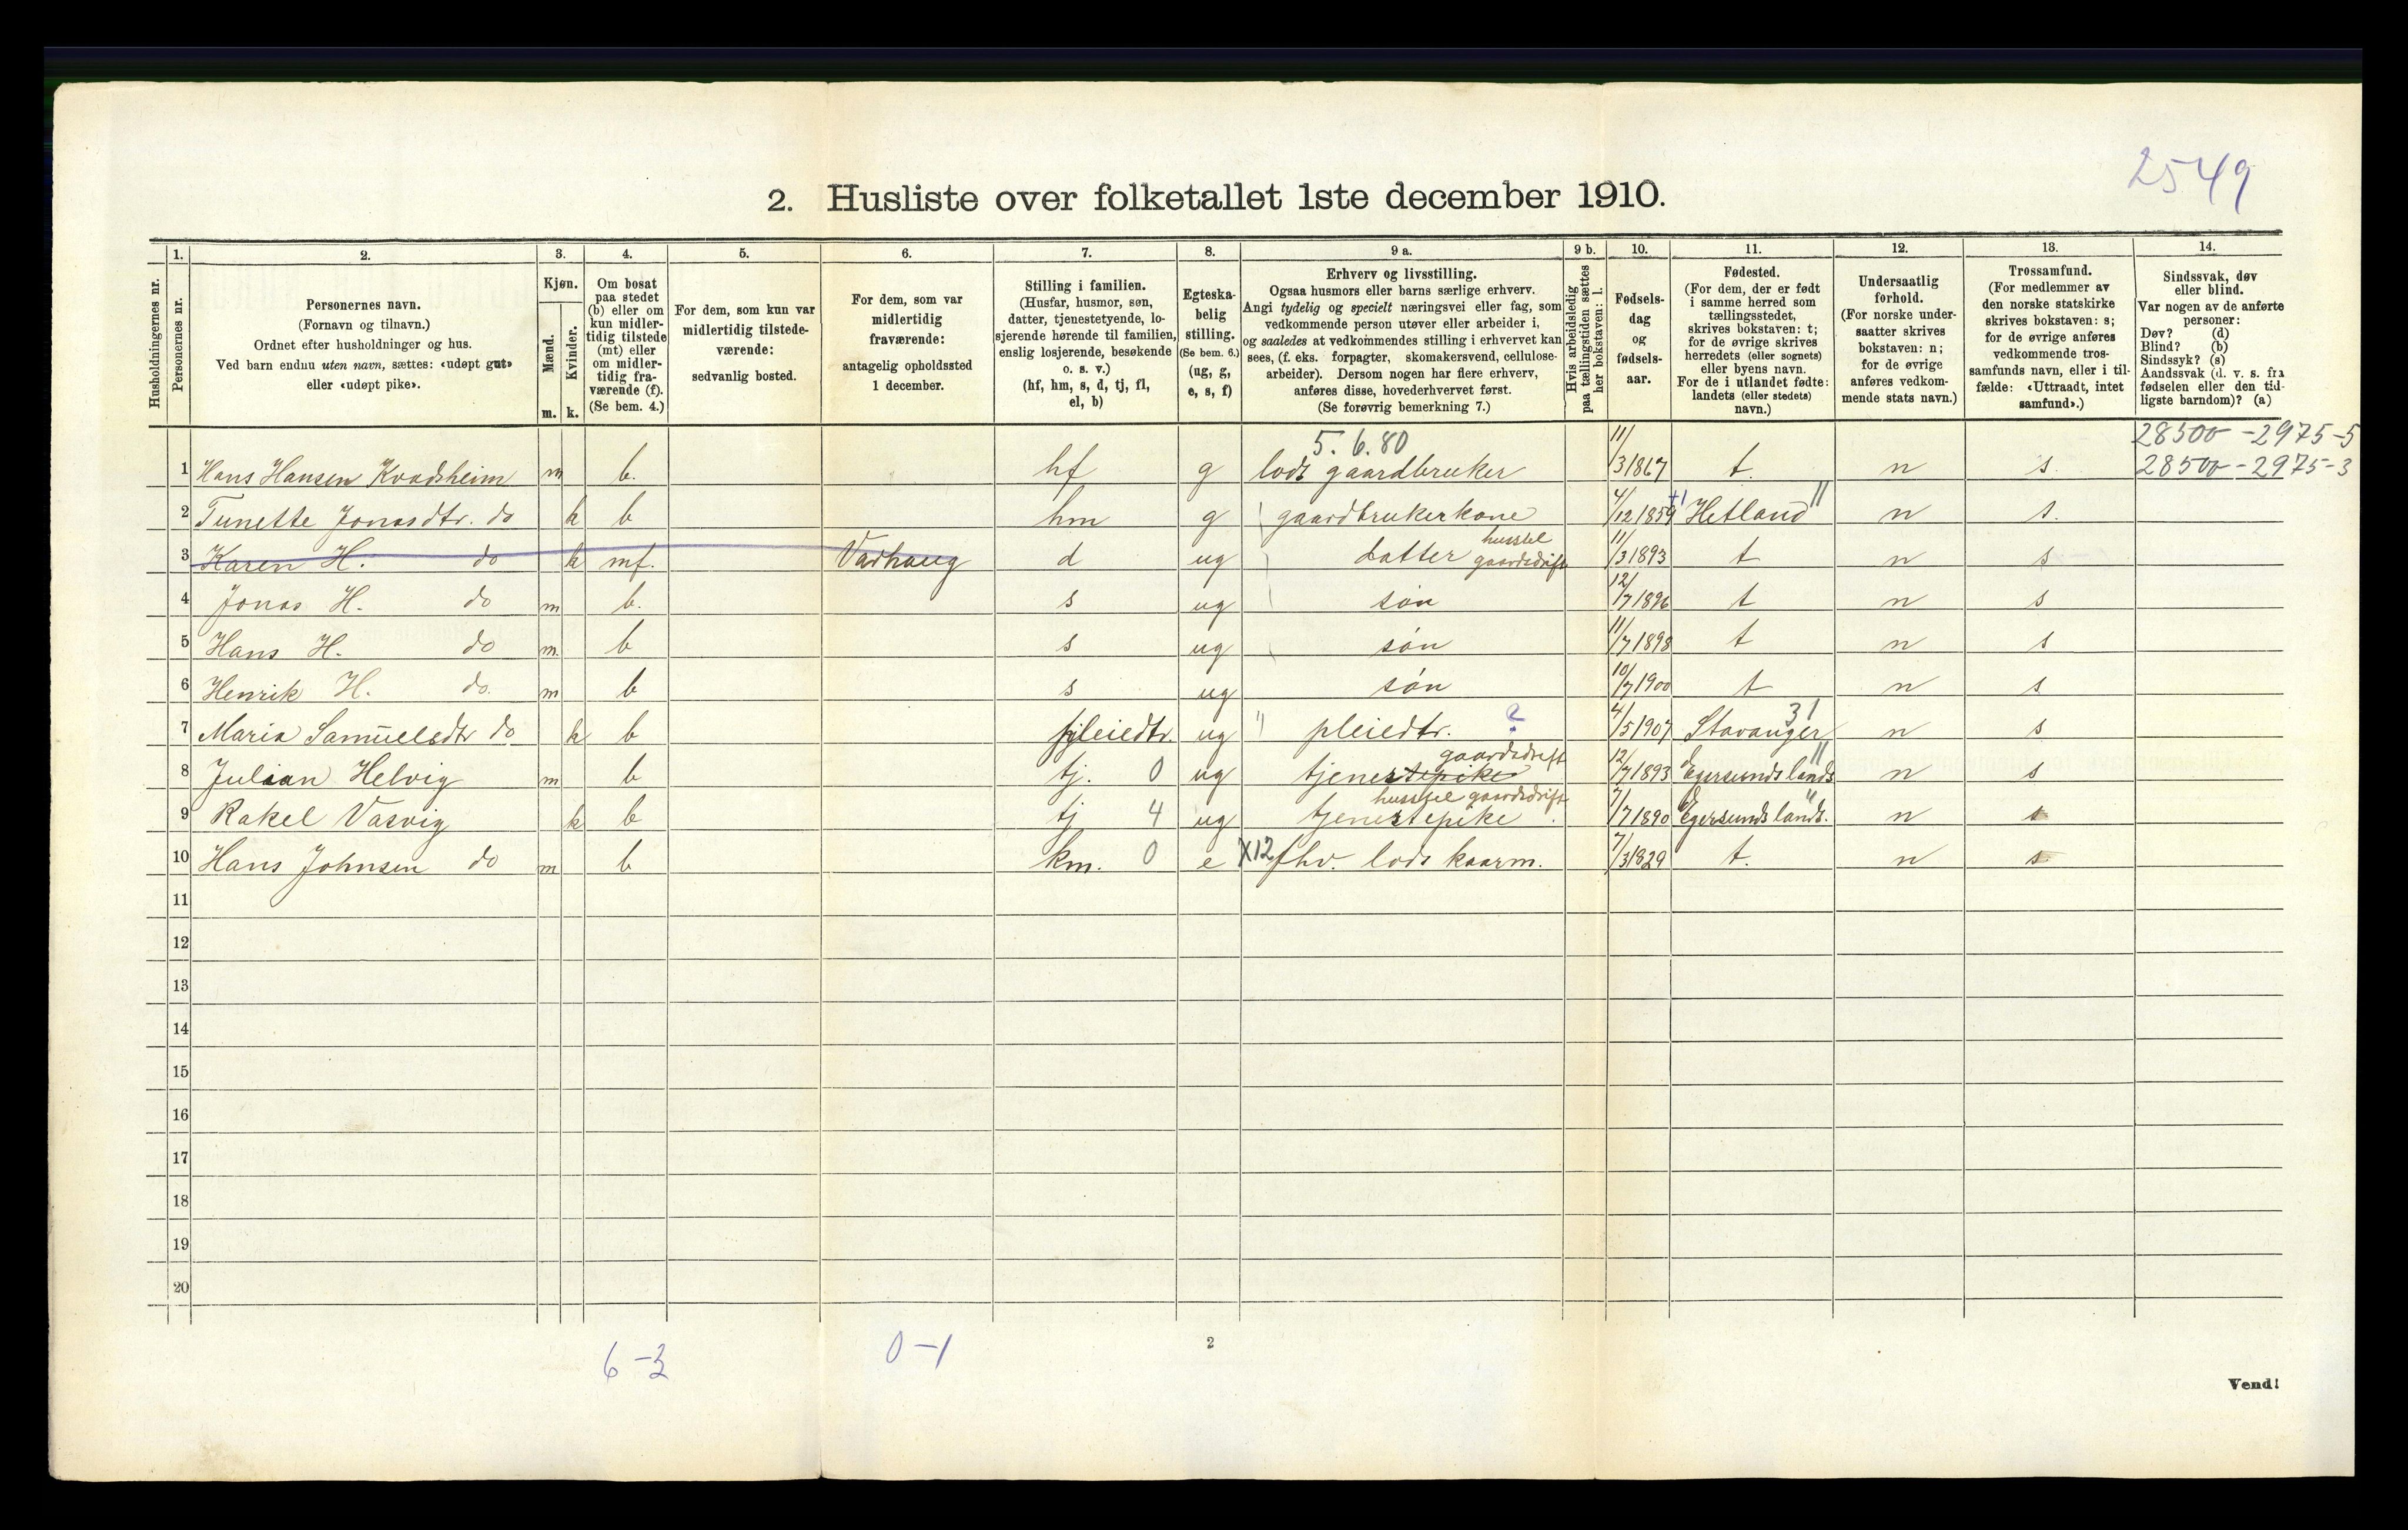 2549
2. Husliste over folketallet 1ste december 1910.
Husholdningernes nr.
1.
Personernes nr.
2.
Personernes navn.
(Fornavn og tilnavn.)
Ordnet efter husholdninger og hus.
Ved barn endnu uten navn, sættes: «udøpt gut»
eller «udøpt pike».
3.
Kjøn.
Mænd.
Kvinder.
m. k.
4.
Om bosat
paa stedet
(b) eller om
kun midler-
tidig tilstede
(mt) eller
om midler-
tidig fra-
værende (f).
(Se bem. 4.)
5.
For dem, som kun var
midlertidig tilstede-
værende:
sedvanlig bosted.
6.
For dem, som var
midlertidig
fraværende:
antagelig opholdssted
1 december.
7.
Stilling i familien.
(Husfar, husmor, søn,
datter, tjenestetyende, lo-
sjerende hørende til familien,
enslig losjerende, besøkende
o. s. v.)
(hf, hm, s, d, tj, fl,
el, b)
8.
Egteska-
belig
stilling.
(Se bem. 6.)
(ug, g,
e, s, f)
9 a.
Erhverv og livsstilling.
Ogsaa husmors eller barns særlige erhverv.
Angi tydelig og specielt næringsvei eller fag, som
vedkommende person utøver eller arbeider i,
og saaledes at vedkommendes stilling i erhvervet kan
sees, (f. eks. forpagter, skomakersvend, cellulose-
arbeider). Dersom nogen har flere erhverv,
anføres disse, hovederhvervet først.
(Se forøvrig bemerkning 7.)
9 b.
Hvis arbeidsledig
paa tællingstiden sættes
her bokstaven: l.
10.
Fødsels-
dag
og
fødsels-
aar.
11.
Fødested.
(For dem, der er født
i samme herred som
tællingsstedet,
skrives bokstaven: t;
for de øvrige skrives
herredets (eller sognets)
eller byens navn.
For de i utlandet fødte:
landets (eller stedets)
navn.)
12.
Undersaatlig
forhold.
(For norske under-
saatter skrives
bokstaven: n;
for de øvrige
anføres vedkom-
mende stats navn.)
13.
Trossamfund.
(For medlemmer av
den norske statskirke
skrives bokstaven: s;
for de øvrige anføres
vedkommende tros-
samfunds navn, eller i til-
fælde: «Uttraadt, intet
samfund».)
14.
Sindssvak, døv
eller blind.
Var nogen av de anførte
personer:
Døv? (d)
Blind? (b)
Sindssyk? (s)
Aandssvak (d. v. s. fra
fødselen eller den tid-
ligste barndom)? (a)
5. 6. 80
28500 - 2975-5
1 Hans Hansen Kvadsheim m b. hf g lods gaardbruker 11/3 1867 t. n s. 28500 - 2975-3
2 Tunette Jonasdtr. do k b hm g gaardbrukerkone 4/12 1859 Hetland n s.
3 Karen H. do k mf. Varhaug d ug datter husstel gaardsdrift 11/3 1893 t n s
4 Jonas H. do m b. s ug søn 12/7 1896 t n s
5 Hans H. do m. b s ug søn 11/7 1898 t n s
6 Henrik H. do. m b s ug søn 10/7 1900 t n s
7 Maria Samuelsdtr do k b pleiedtr. ug " pleiedtr. ? 4/5 1907 Stavanger 31 n s
8 Julian Helvig m b tj. 0 ug tjenestepike gaardsdrift 12/7 1893 Egersunds lands n s
9 Rakel Vasvig k b tj 4 ug tjenestepike husstel gaardsdrift 7/7 1890 Egersunds lands. n s
10 Hans Johnsen do m b km. 0 e X12 fhv. lods kaarm. 7/3 1829 t. n s
11
12
13
14
15
16
17
18
19
20
6-3 0-1
2
Vend!